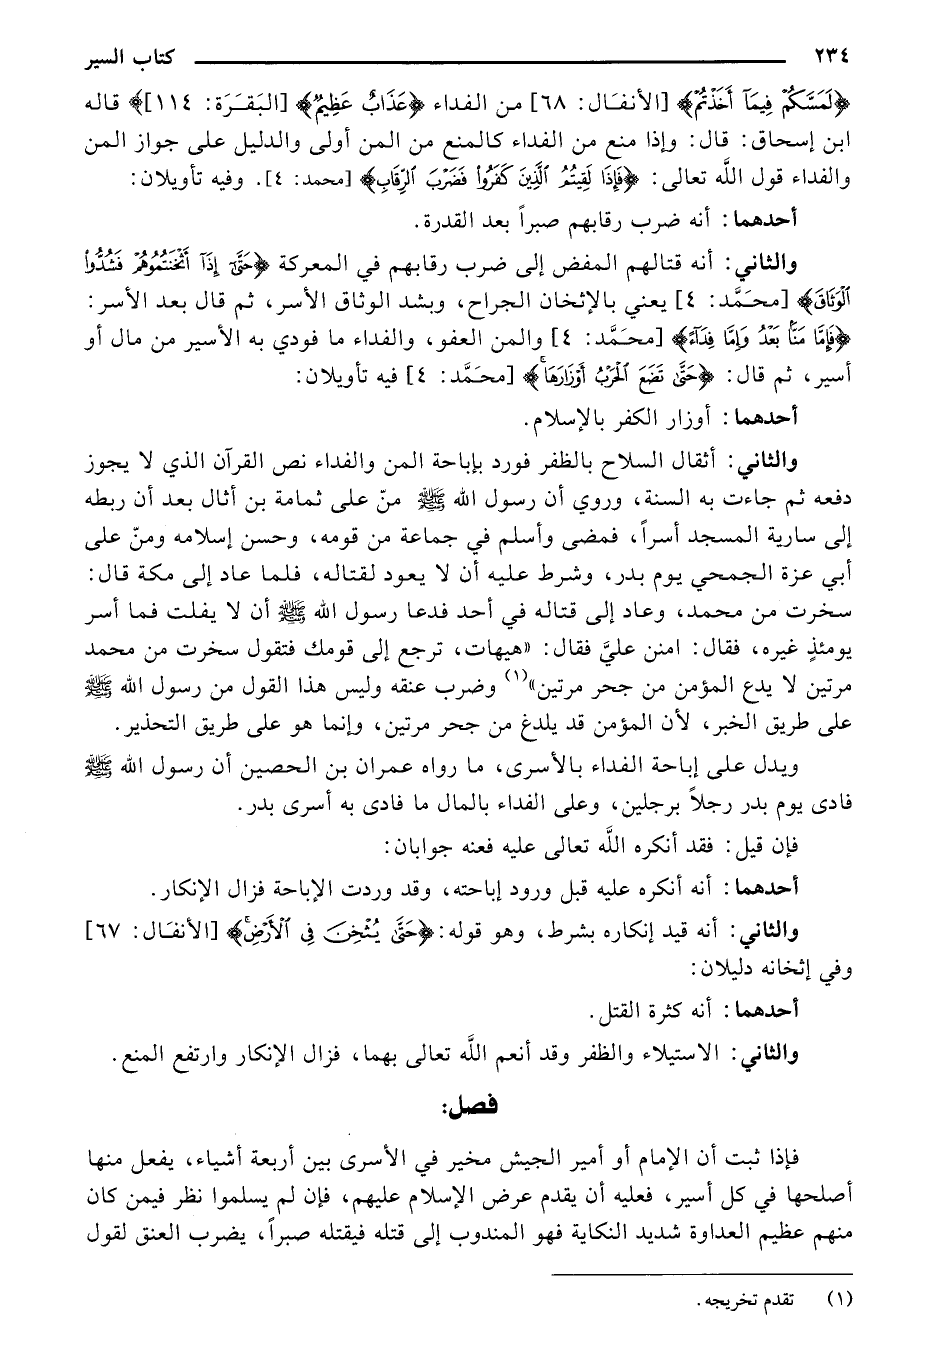 ٢٣٤ كتاب السير
﴿لَمَسَّكُمْ فِيمَآ أَخَذْتُمْ﴾ [الأنفَال: ٦٨] من الفداء ﴿عَذَابٌ عَظِيمٌ﴾ [البَقَرَة: ١١٤]﴾ قاله
ابن إسحاق: قال: وإذا منع من الفداء كالمنع من المن أولى والدليل على جواز المن
والفداء قول اللَّه تعالى: ﴿فَإِذَا لَقِيتُمُ ٱلَّذِينَ كَفَرُوا۟ فَضَرْبَ ٱلرِّقَابِ﴾ [محمد: ٤]. وفيه تأويلان:
أحدهما: أنه ضرب رقابهم صبراً بعد القدرة.
والثاني: أنه قتالهم المفض إلى ضرب رقابهم في المعركة ﴿حَتَّىٰٓ إِذَآ أَثْخَنتُمُوهُمْ فَشُدُّوا۟
ٱلْوَثَاقَ﴾ [محَمَّد: ٤] يعني بالإثخان الجراح، وبشد الوثاق الأسر، ثم قال بعد الأسر:
﴿فَإِمَّا مَنًّۢا بَعْدُ وَإِمَّا فِدَآءً﴾ [محَمَّد: ٤] والمن العفو، والفداء ما فودي به الأسير من مال أو
أسير، ثم قال: ﴿حَتَّىٰ تَضَعَ ٱلْحَرْبُ أَوْزَارَهَا ۚ﴾ [محَمَّد: ٤] فيه تأويلان:
أحدهما: أوزار الكفر بالإسلام.
والثاني: أثقال السلاح بالظفر فورد بإباحة المن والفداء نص القرآن الذي لا يجوز
دفعه ثم جاءت به السنة، وروي أن رسول الله ﷺ منّ على ثمامة بن أثال بعد أن ربطه
إلى سارية المسجد أسراً، فمضى وأسلم في جماعة من قومه، وحسن إسلامه ومنّ على
أبي عزة الجمحي يوم بدر، وشرط عليه أن لا يعود لقتاله، فلما عاد إلى مكة قال:
سخرت من محمد، وعاد إلى قتاله في أحد فدعا رسول الله ﷺ أن لا يفلت فما أسر
يومئذٍ غيره، فقال: امنن عليَّ فقال: «هيهات، ترجع إلى قومك فتقول سخرت من محمد
مرتين لا يدع المؤمن من جحر مرتين»(١) وضرب عنقه وليس هذا القول من رسول الله ﷺ
على طريق الخبر، لأن المؤمن قد يلدغ من جحر مرتين، وإنما هو على طريق التحذير.
ويدل على إباحة الفداء بالأسرى، ما رواه عمران بن الحصين أن رسول الله ﷺ
فادى يوم بدر رجلاً برجلين، وعلى الفداء بالمال ما فادى به أسرى بدر.
فإن قيل: فقد أنكره اللَّه تعالى عليه فعنه جوابان:
أحدهما: أنه أنكره عليه قبل ورود إباحته، وقد وردت الإباحة فزال الإنكار.
والثاني: أنه قيد إنكاره بشرط، وهو قوله: ﴿حَتَّىٰ يُثْخِنَ فِى ٱلْأَرْضِ ۚ﴾ [الأنفَال: ٦٧]
وفي إثخانه دليلان:
أحدهما: أنه كثرة القتل.
والثاني: الاستيلاء والظفر وقد أنعم اللَّه تعالى بهما، فزال الإنكار وارتفع المنع.
فصل:
فإذا ثبت أن الإمام أو أمير الجيش مخير في الأسرى بين أربعة أشياء، يفعل منها
أصلحها في كل أسير، فعليه أن يقدم عرض الإسلام عليهم، فإن لم يسلموا نظر فيمن كان
منهم عظيم العداوة شديد النكاية فهو المندوب إلى قتله فيقتله صبراً، يضرب العنق لقول
(١) تقدم تخريجه.